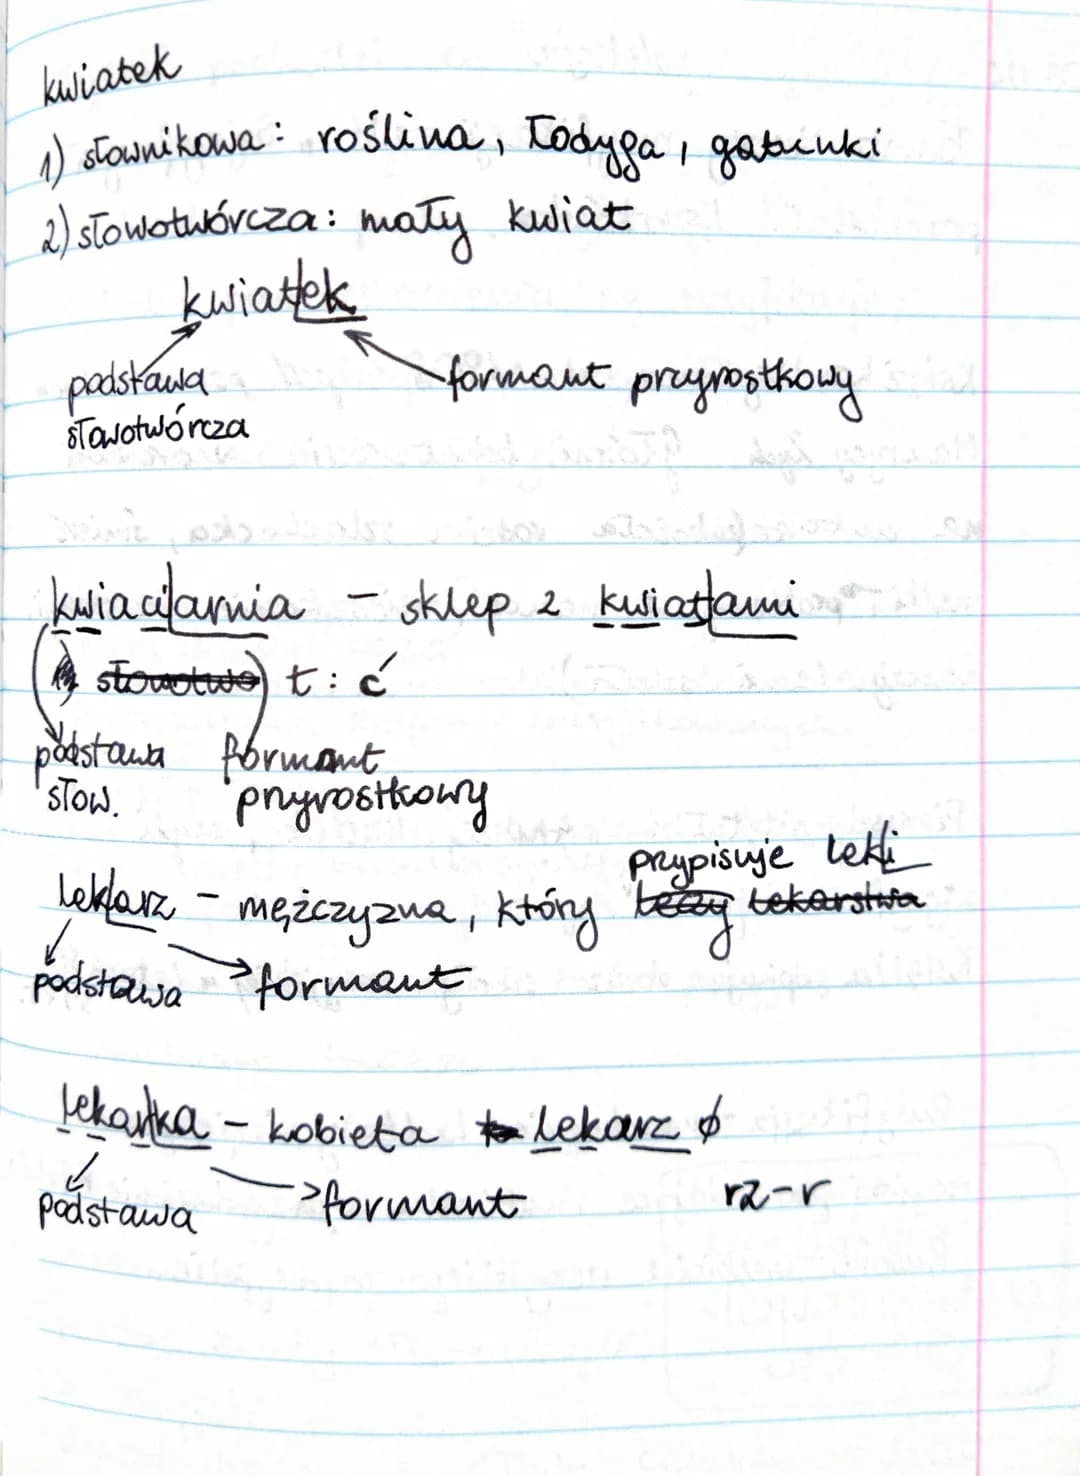 kwiatek
1) słownikowa: roślina, łodyga, gałunki
2) słowotwórcza: mały kwiat
kwiatek
podstawa formant przyrostkowy
słowotwórcza
kwiaciarnia - sklep z kwiatami
słowotwó t : ć
podstawa formant
słow. przyrostkowy
przypisuje leki
lekarz - mężczyzna, który leczy lekarstwa
podstawa formant
lekarka - kobieta lekarz ø
podstawa formant rz-r